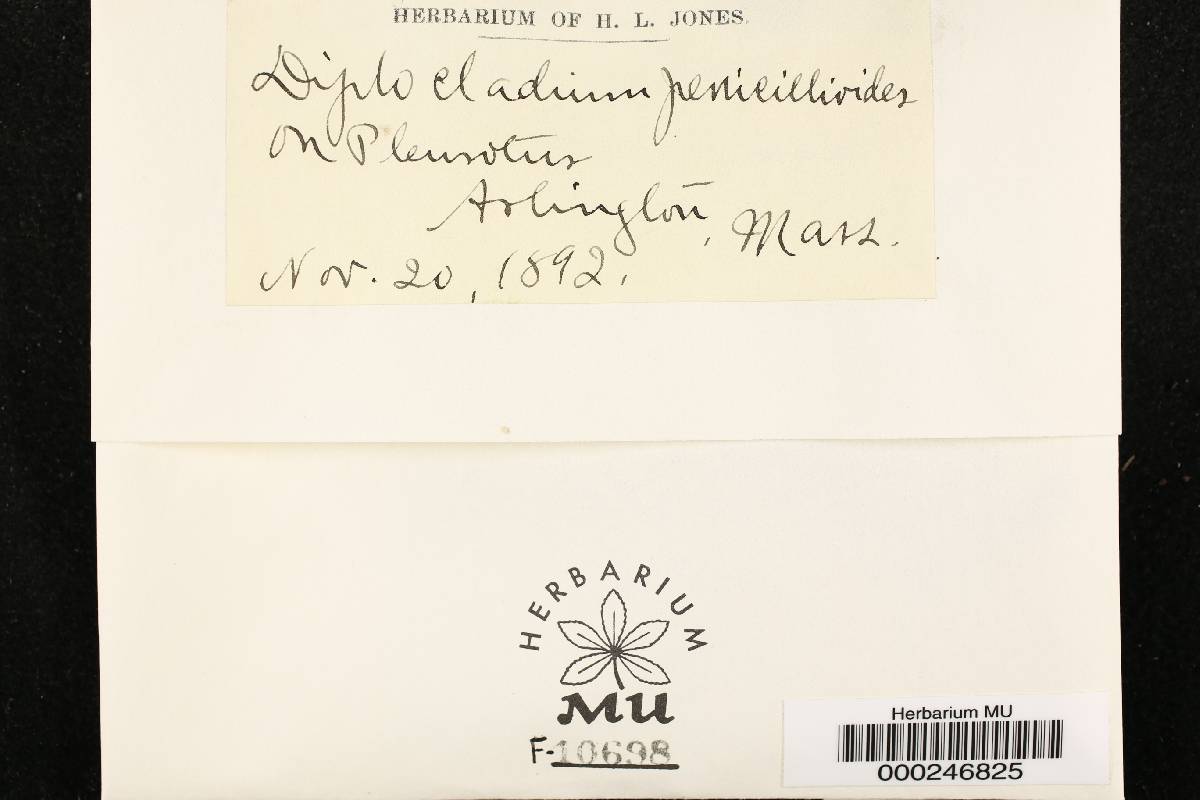 HERBARIUM OF H. L. JONES.
Diplocladium penicillioides
on Pleurotus
Arlington, Mass.
Nov. 20, 1892.
HERBARIUM
MU
F-10698
Herbarium MU
000246825